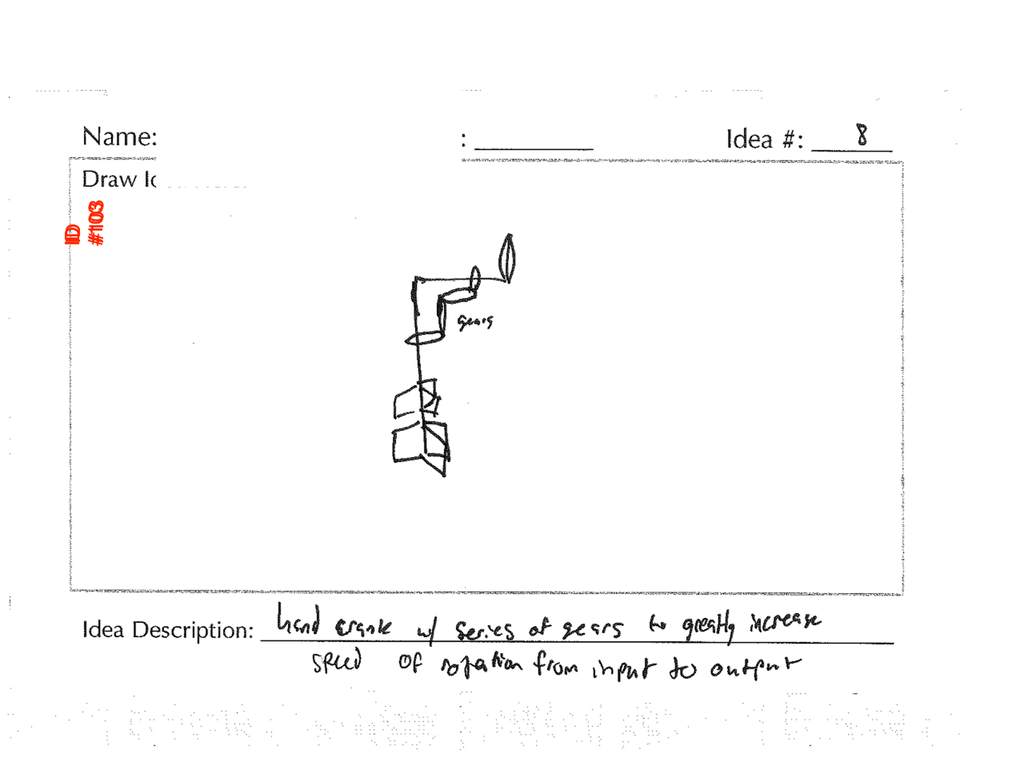 Name: : Idea #: 8
Draw Id
ID
#103
gears
Idea Description: hand crank w/ series of gears to greatly increase
speed of rotation from input to output